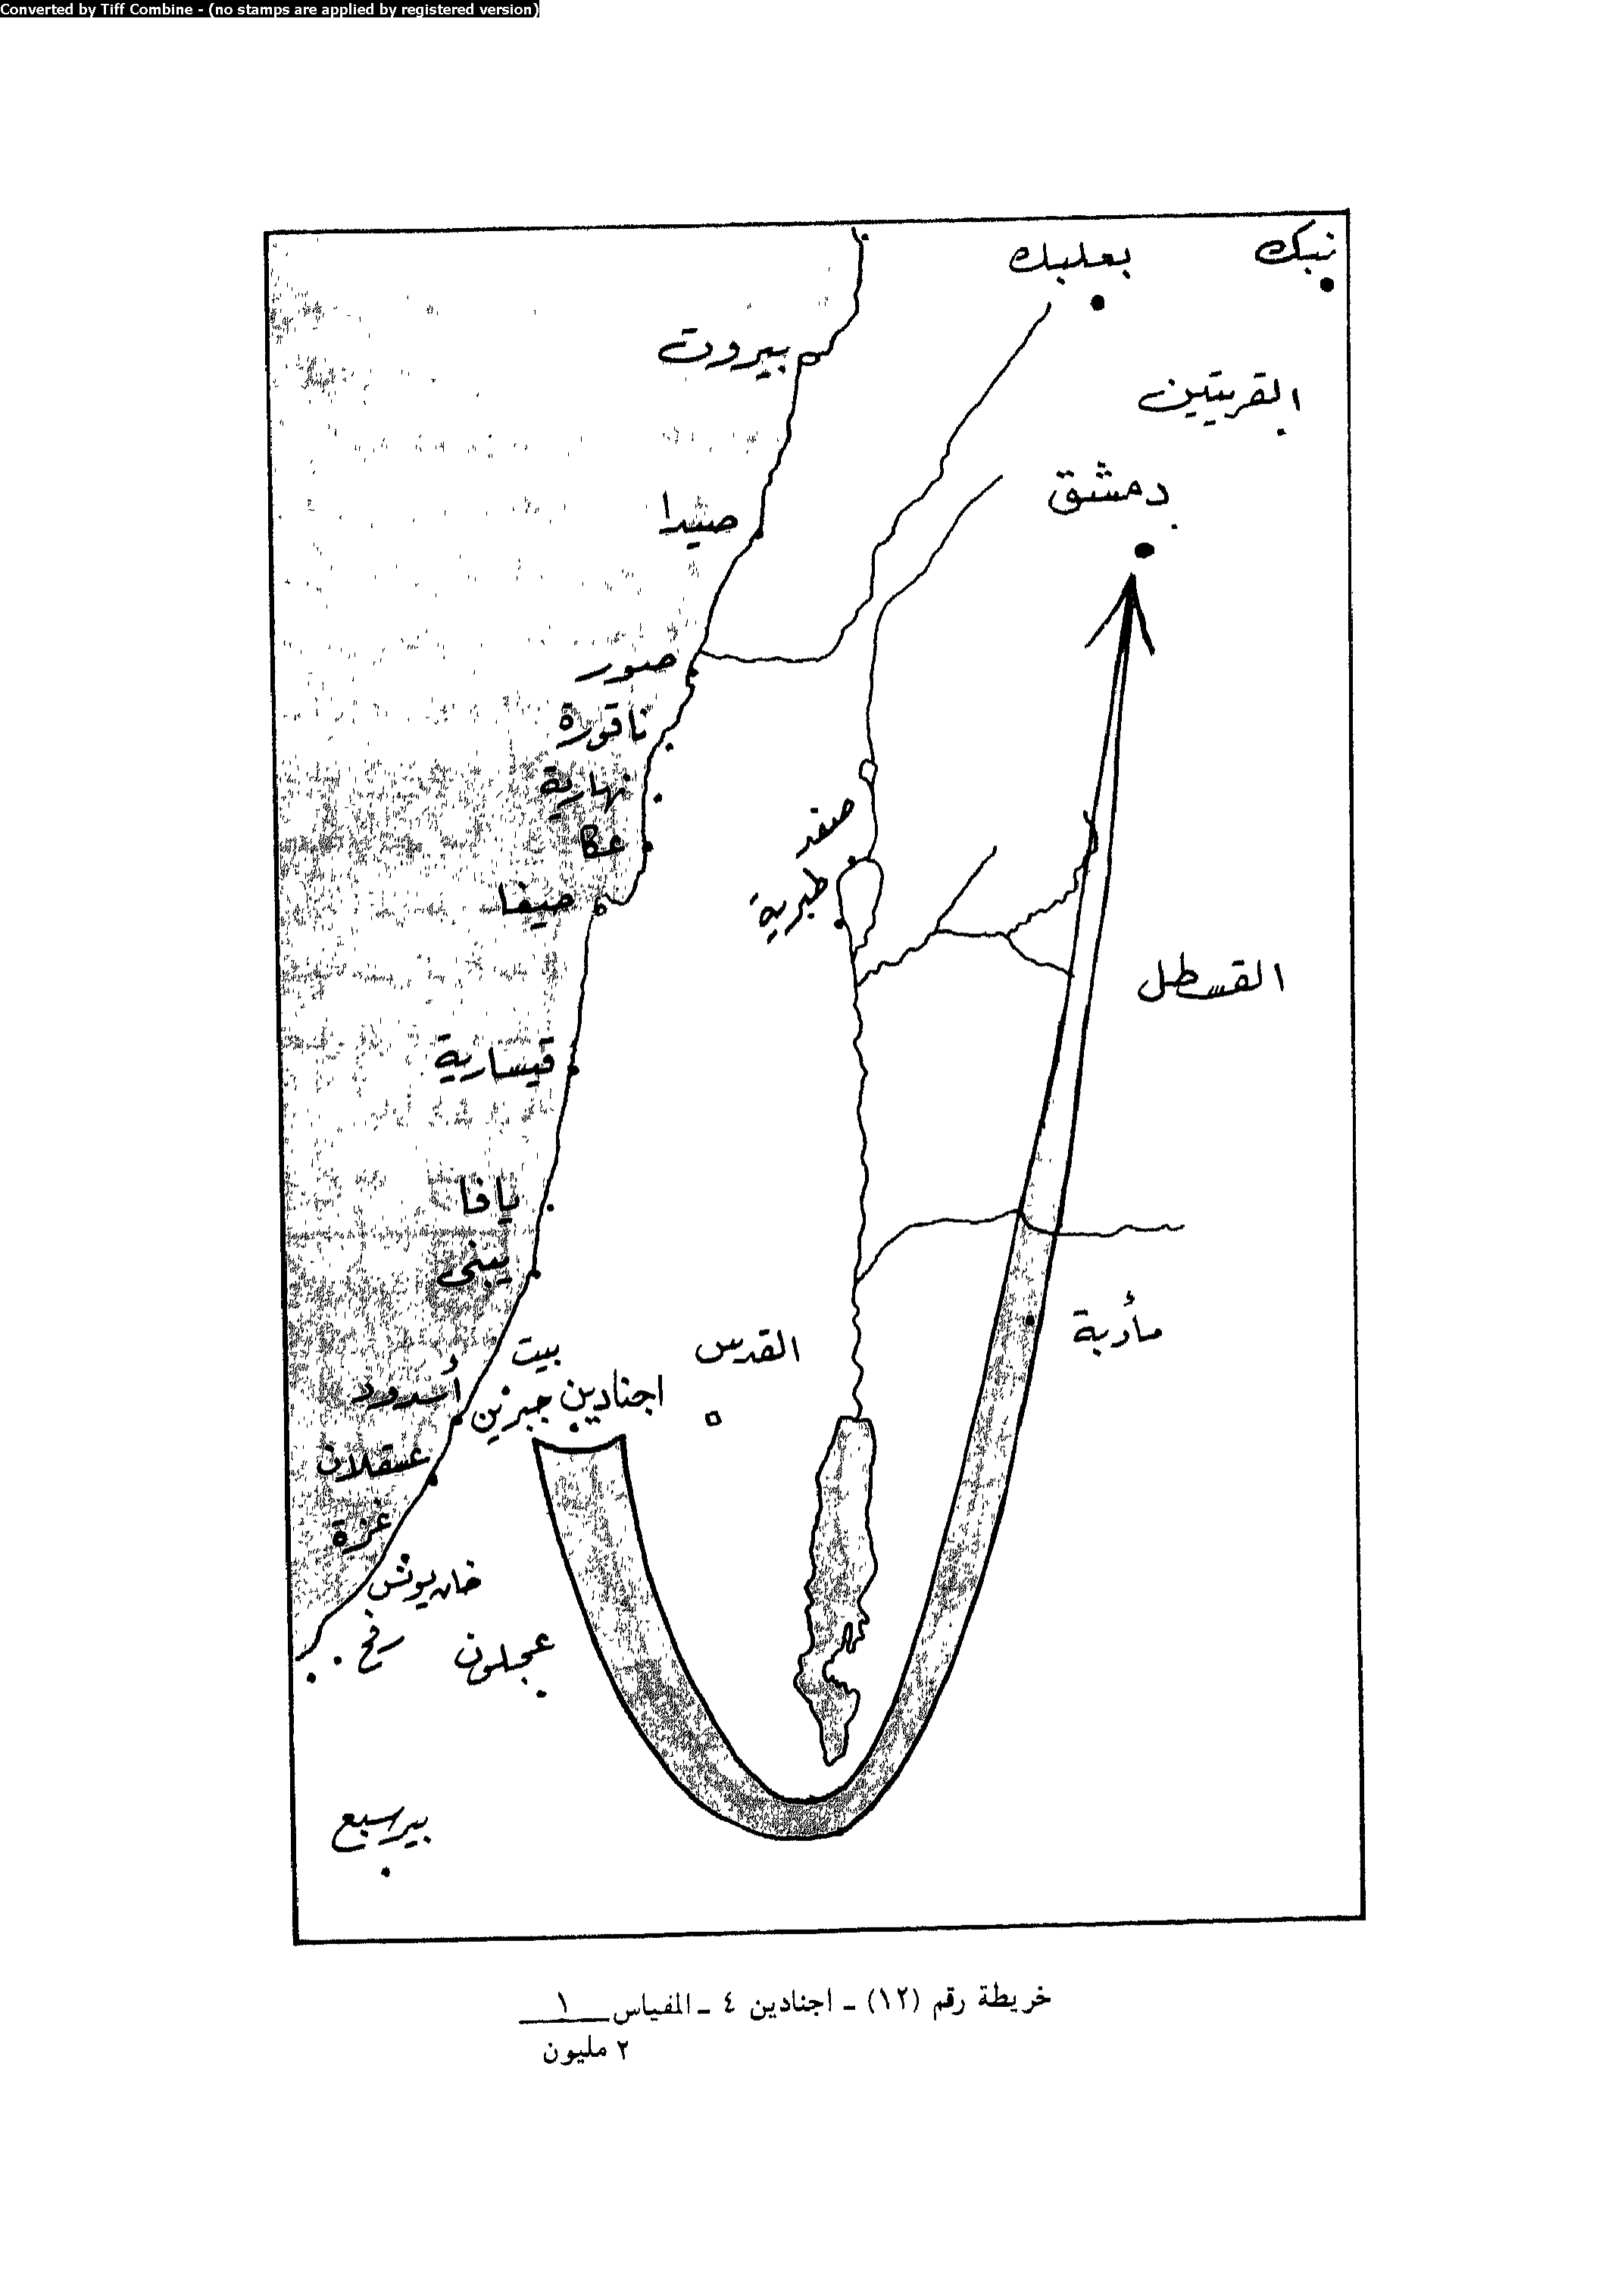 Converted by Tiff Combine - (no stamps are applied by registered version)
نبك
بعلبك
بيروت
القريتين
دمشق
صيدا
صور
ناقورة
نهارية
عكا
صفد
طبرية
حيفا
القسطل
قيسارية
يافا
يبنى
مأدبة
القدس
بيت
جبرين
اجنادين
أسدود
عسقلان
غزة
خان يونس
رفح
عجلون
بير سبع
خريطة رقم (١٢) - اجنادين ٤ - المقياس ١
٢ مليون